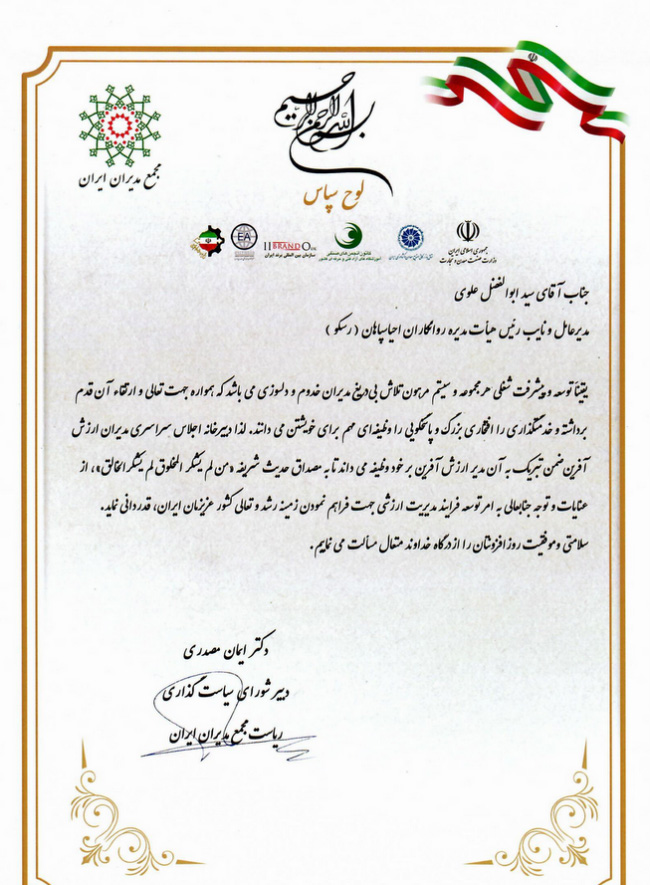 بسم الله الرحمن الرحیم
لوح سپاس
مجمع مدیران ایران
جمهوری اسلامی ایران
وزارت صنعت، معدن و تجارت
کانون انجمن های صنفی
EA
BRAND
سازمان بین المللی برند ایران
جناب آقای سید ابوالفضل علوی
مدیرعامل و نایب رئیس هیأت مدیره روانکاران احیا سپاهان (رسکو)
یقیناً توسعه و پیشرفت شغلی هر مجموعه و سیستم مرهون تلاش بی دریغ مدیران خدوم و دلسوزی می باشد که همواره جهت تعالی و ارتقاء آن قدم
برداشته و خدمتگذاری را افتخاری بزرگ و پاسخگویی را وظیفه‌ای مهم برای خویشتن می دانند. لذا دبیرخانه اجلاس سراسری مدیران ارزش
آفرین ضمن تبریک به آن مدیر ارزش آفرین بر خود وظیفه می داند تا به مصداق حدیث شریفه «من لم یشکر المخلوق لم یشکر الخالق»، از
عنایات و توجه جنابعالی به امر توسعه فرایند مدیریت ارزشی جهت فراهم نمودن زمینه رشد و تعالی کشور عزیزمان ایران، قدردانی نماید.
سلامتی و موفقیت روز افزونتان را از درگاه خداوند متعال مسألت می نمایم.
دکتر ایمان مصدری
دبیر شورای سیاست گذاری
ریاست مجمع مدیران ایران